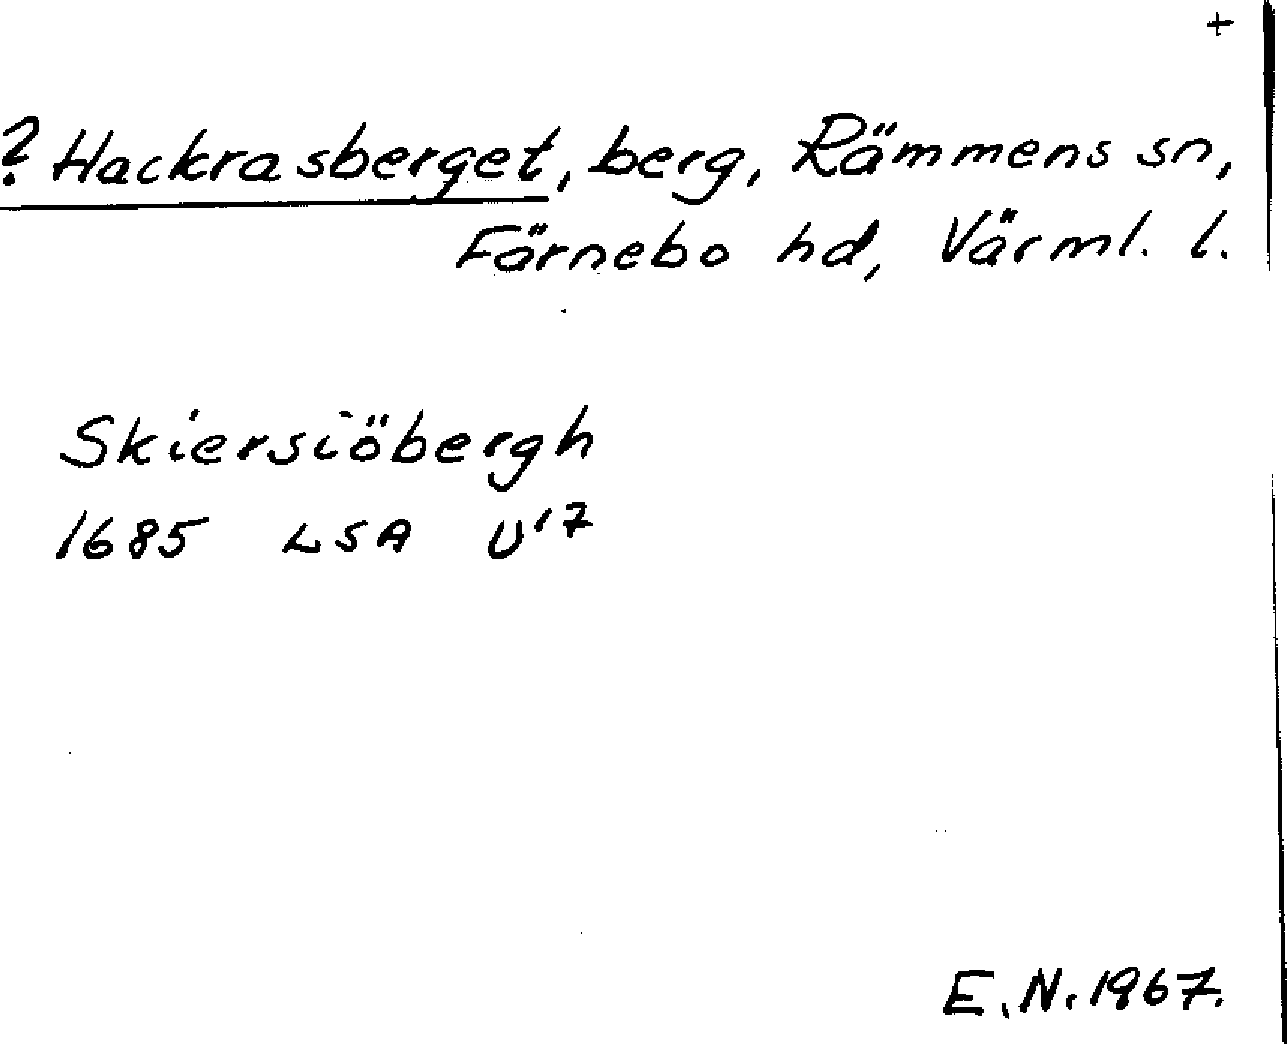 +
? Hackrasberget, berg, Rämmens sn,
Färnebo hd, Värml. l.
Skiersiöbergh
1685 LSA U¹⁷
E.N. 1967.